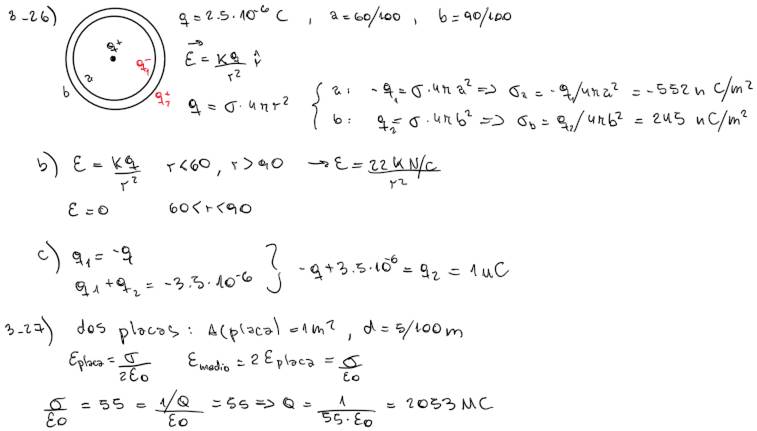 3-26) q = 2.5·10⁻⁶ C , a = 60/100 , b = 90/100
q⁺ q₁⁻ a b q₂⁺
E⃗ = Kq/r² r̂
q = σ·4πr²
{ a: -q₁ = σ·4πa² => σₐ = -q₁/4πa² = -552 n C/m²
b: q₂ = σ·4πb² => σ_b = q₂/4πb² = 245 n C/m²
b) E = Kq/r² r<60, r>90 → E = 22 K N/C / r²
E = 0 60<r<90
c) q₁ = -q
q₁+q₂ = -3.5·10⁻⁶ } -q+3.5·10⁻⁶ = q₂ = 1 uC
3-27) dos placas: A(placa) = 1m², d = 5/100 m
Eplaca = σ/2ε0 Emedio = 2 Eplaca = σ/ε0
σ/ε0 = 55 = 1/Q/ε0 = 55 => Q = 1/55·ε0 = 2053 MC